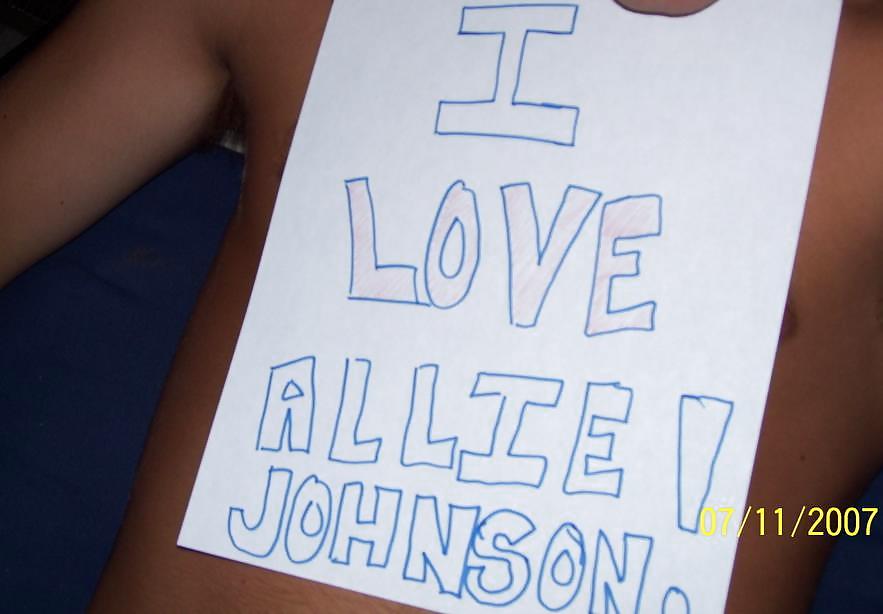 I
LOVE
ALLIE!
JOHNSON.
07/11/2007